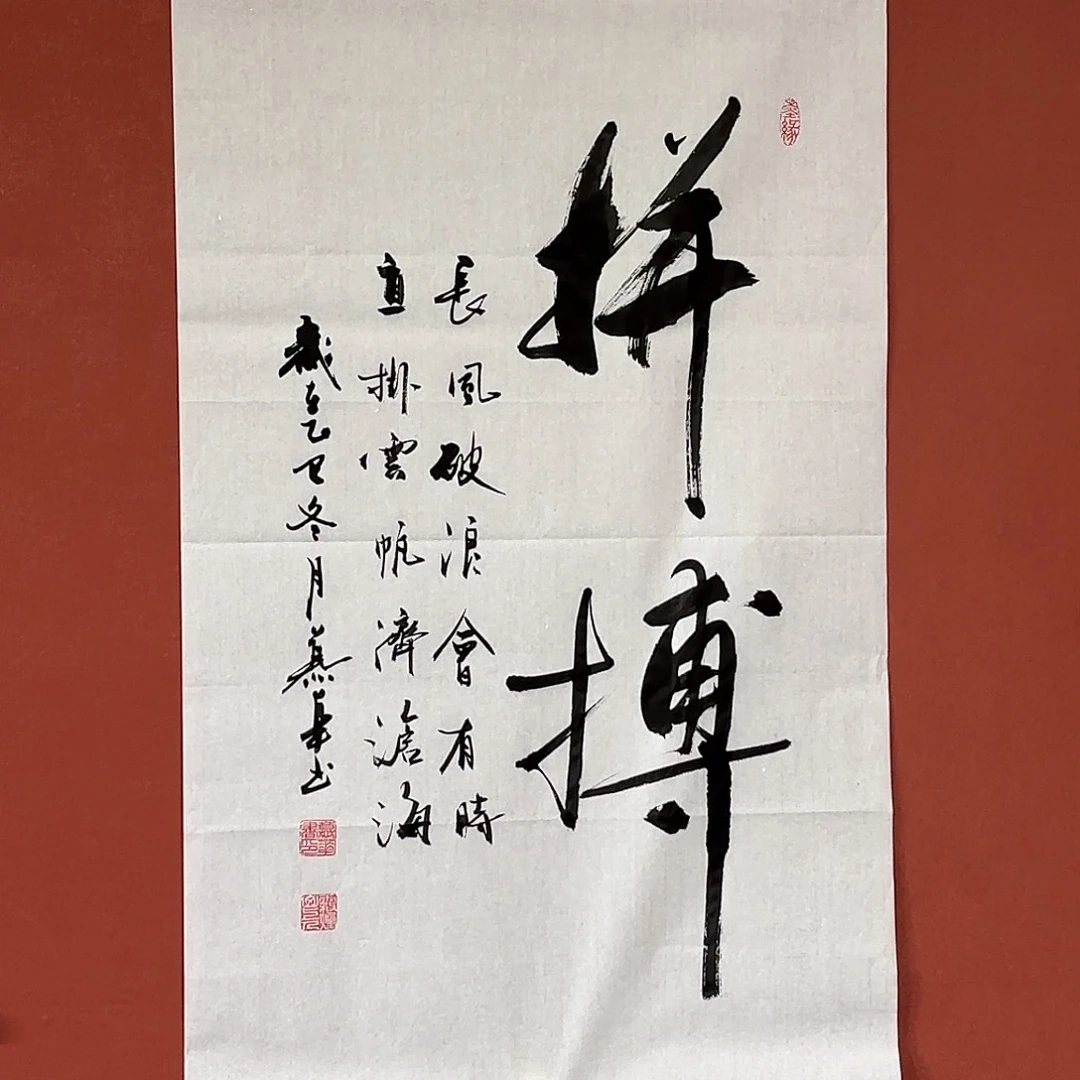 拼搏
長風破浪會有時
直掛雲帆濟滄海
歲在乙巳冬月慕華书
墨缘